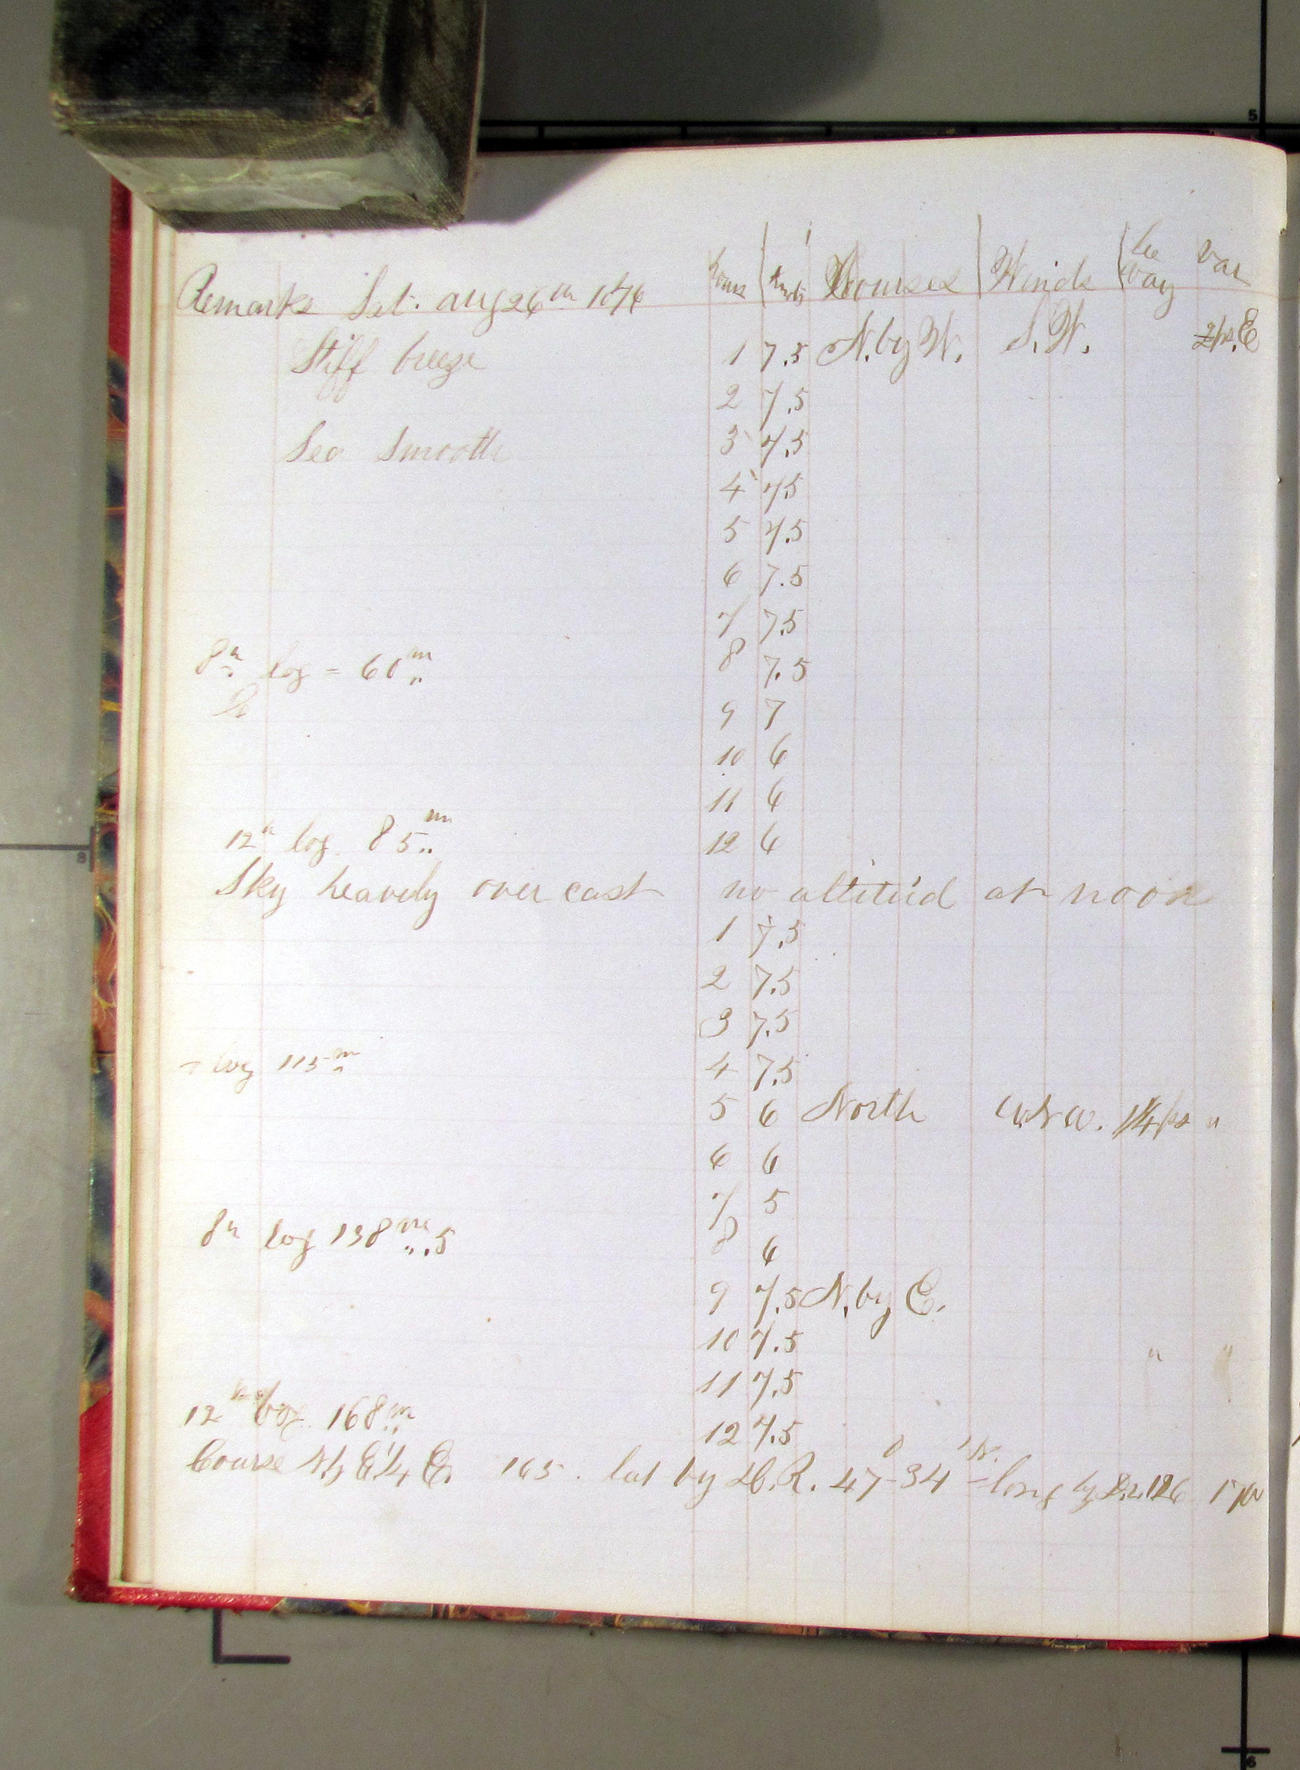 Remarks Sat. Aug 26th 1876 hours Knots Courses Winds Lee way Var
Stiff breeze 1 7.5 N. by W. S.W. 2 ps. E
2 7.5
Sea Smooth 3 7.5
4 7.5
5 7.5
6 7.5
7 7.5
8h log = 60m 8 7.5
9 7
10 6
11 6
12h log 85m 12 6
Sky heavely over cast no altitud at noon
1 7.5
2 7.5
3 7.5
log 115m 4 7.5
5 6 North W.N.W. 1/4 ps "
6 6
7 5
8h log 138m.5 8 6
9 7.5 N. by E.
10 7.5
11 7.5 " "
12h log 168m 12 7.5
Course N by E 1/4 E. 165. lat by D.R. 47°-34' N. = long by D.R. 126
5
8
6